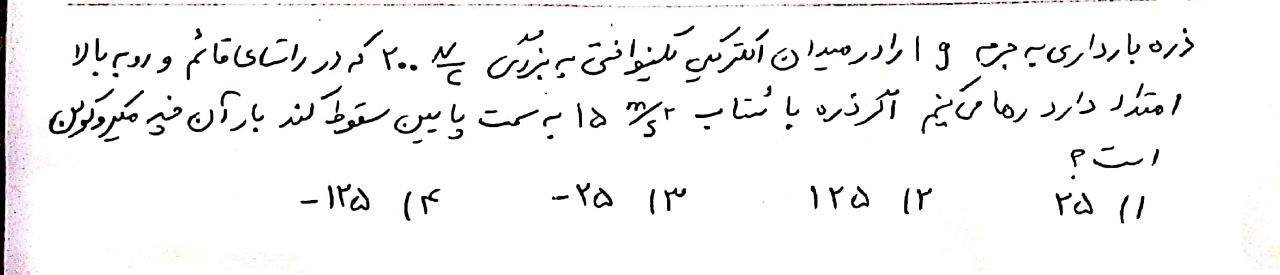 ذره بارداری به جرم ۱ g را در میدان الکتریکی یکنواختی به بزرگی ۲۰۰ N/C که در راستای قائم و رو به بالا
امتداد دارد رها می‌کنیم اگر ذره با شتاب ۱۵ m/s² به سمت پایین سقوط کند بار آن چند میکروکولن
است؟
۱) ۲۵ ۲) ۱۲۵ ۳) -۲۵ ۴) -۱۲۵